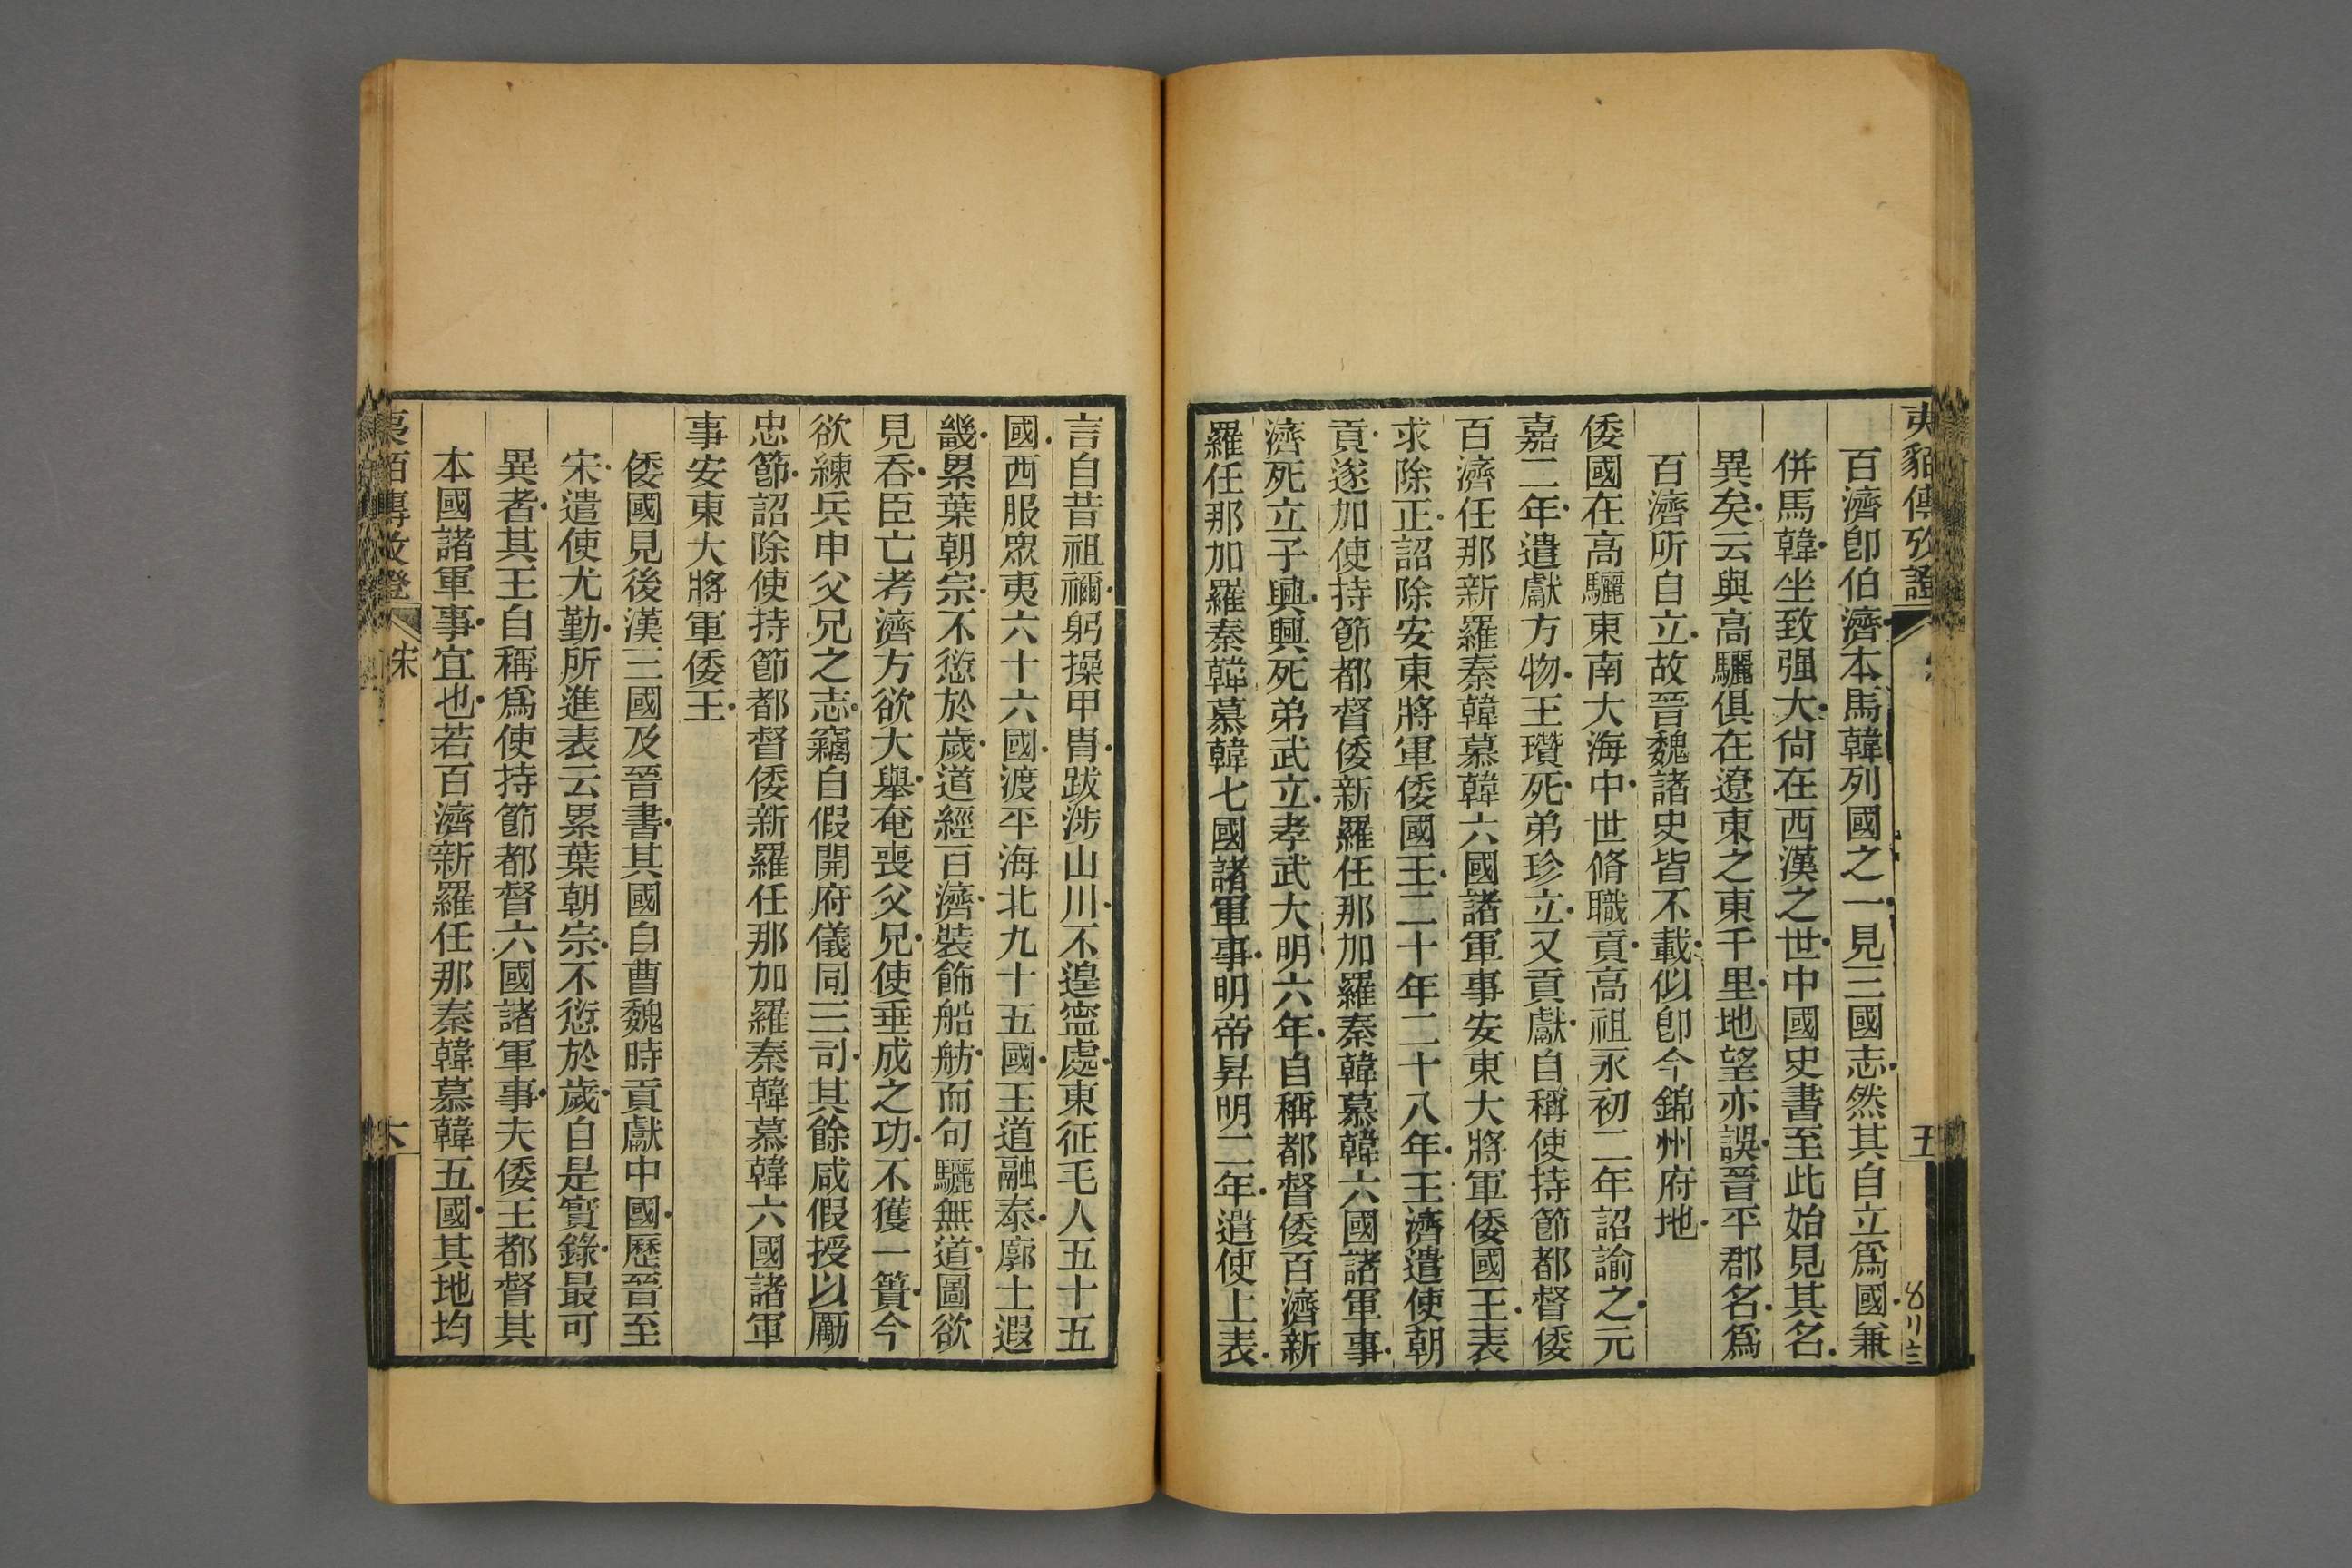 夷貊傳攷證
五
百濟卽伯濟本馬韓列國之一見三國志然其自立爲國兼
併馬韓坐致强大尙在西漢之世中國史書至此始見其名
異矣云與高驪俱在遼東之東千里地望亦誤晉平郡名爲
百濟所自立故晉魏諸史皆不載似卽今錦州府地
倭國在高驪東南大海中世脩職貢高祖永初二年詔諭之元
嘉二年遣獻方物王瓚死弟珍立又貢獻自稱使持節都督倭
百濟任那新羅秦韓慕韓六國諸軍事安東大將軍倭國王表
求除正詔除安東將軍倭國王二十年二十八年王濟遣使朝
貢遂加使持節都督倭新羅任那加羅秦韓慕韓六國諸軍事
濟死立子興興死弟武立孝武大明六年自稱都督倭百濟新
羅任那加羅秦韓慕韓七國諸軍事明帝昇明二年遣使上表
言自昔祖禰躬操甲冑跋涉山川不遑寍處東征毛人五十五
國西服眾夷六十六國渡平海北九十五國王道融泰廓土遐
畿累葉朝宗不愆於歲道經百濟裝飾船舫而句驪無道圖欲
見吞臣亡考濟方欲大舉奄喪父兄使垂成之功不獲一簣今
欲練兵申父兄之志竊自假開府儀同三司其餘咸假授以勵
忠節詔除使持節都督倭新羅任那加羅秦韓慕韓六國諸軍
事安東大將軍倭王
倭國見後漢三國及晉書其國自曹魏時貢獻中國歷晉至
宋遣使尤勤所進表云累葉朝宗不愆於歲自是實錄最可
異者其王自稱爲使持節都督六國諸軍事夫倭王都督其
本國諸軍事宜也若百濟新羅任那秦韓慕韓五國其地均
夷貊傳攷證
宋
六